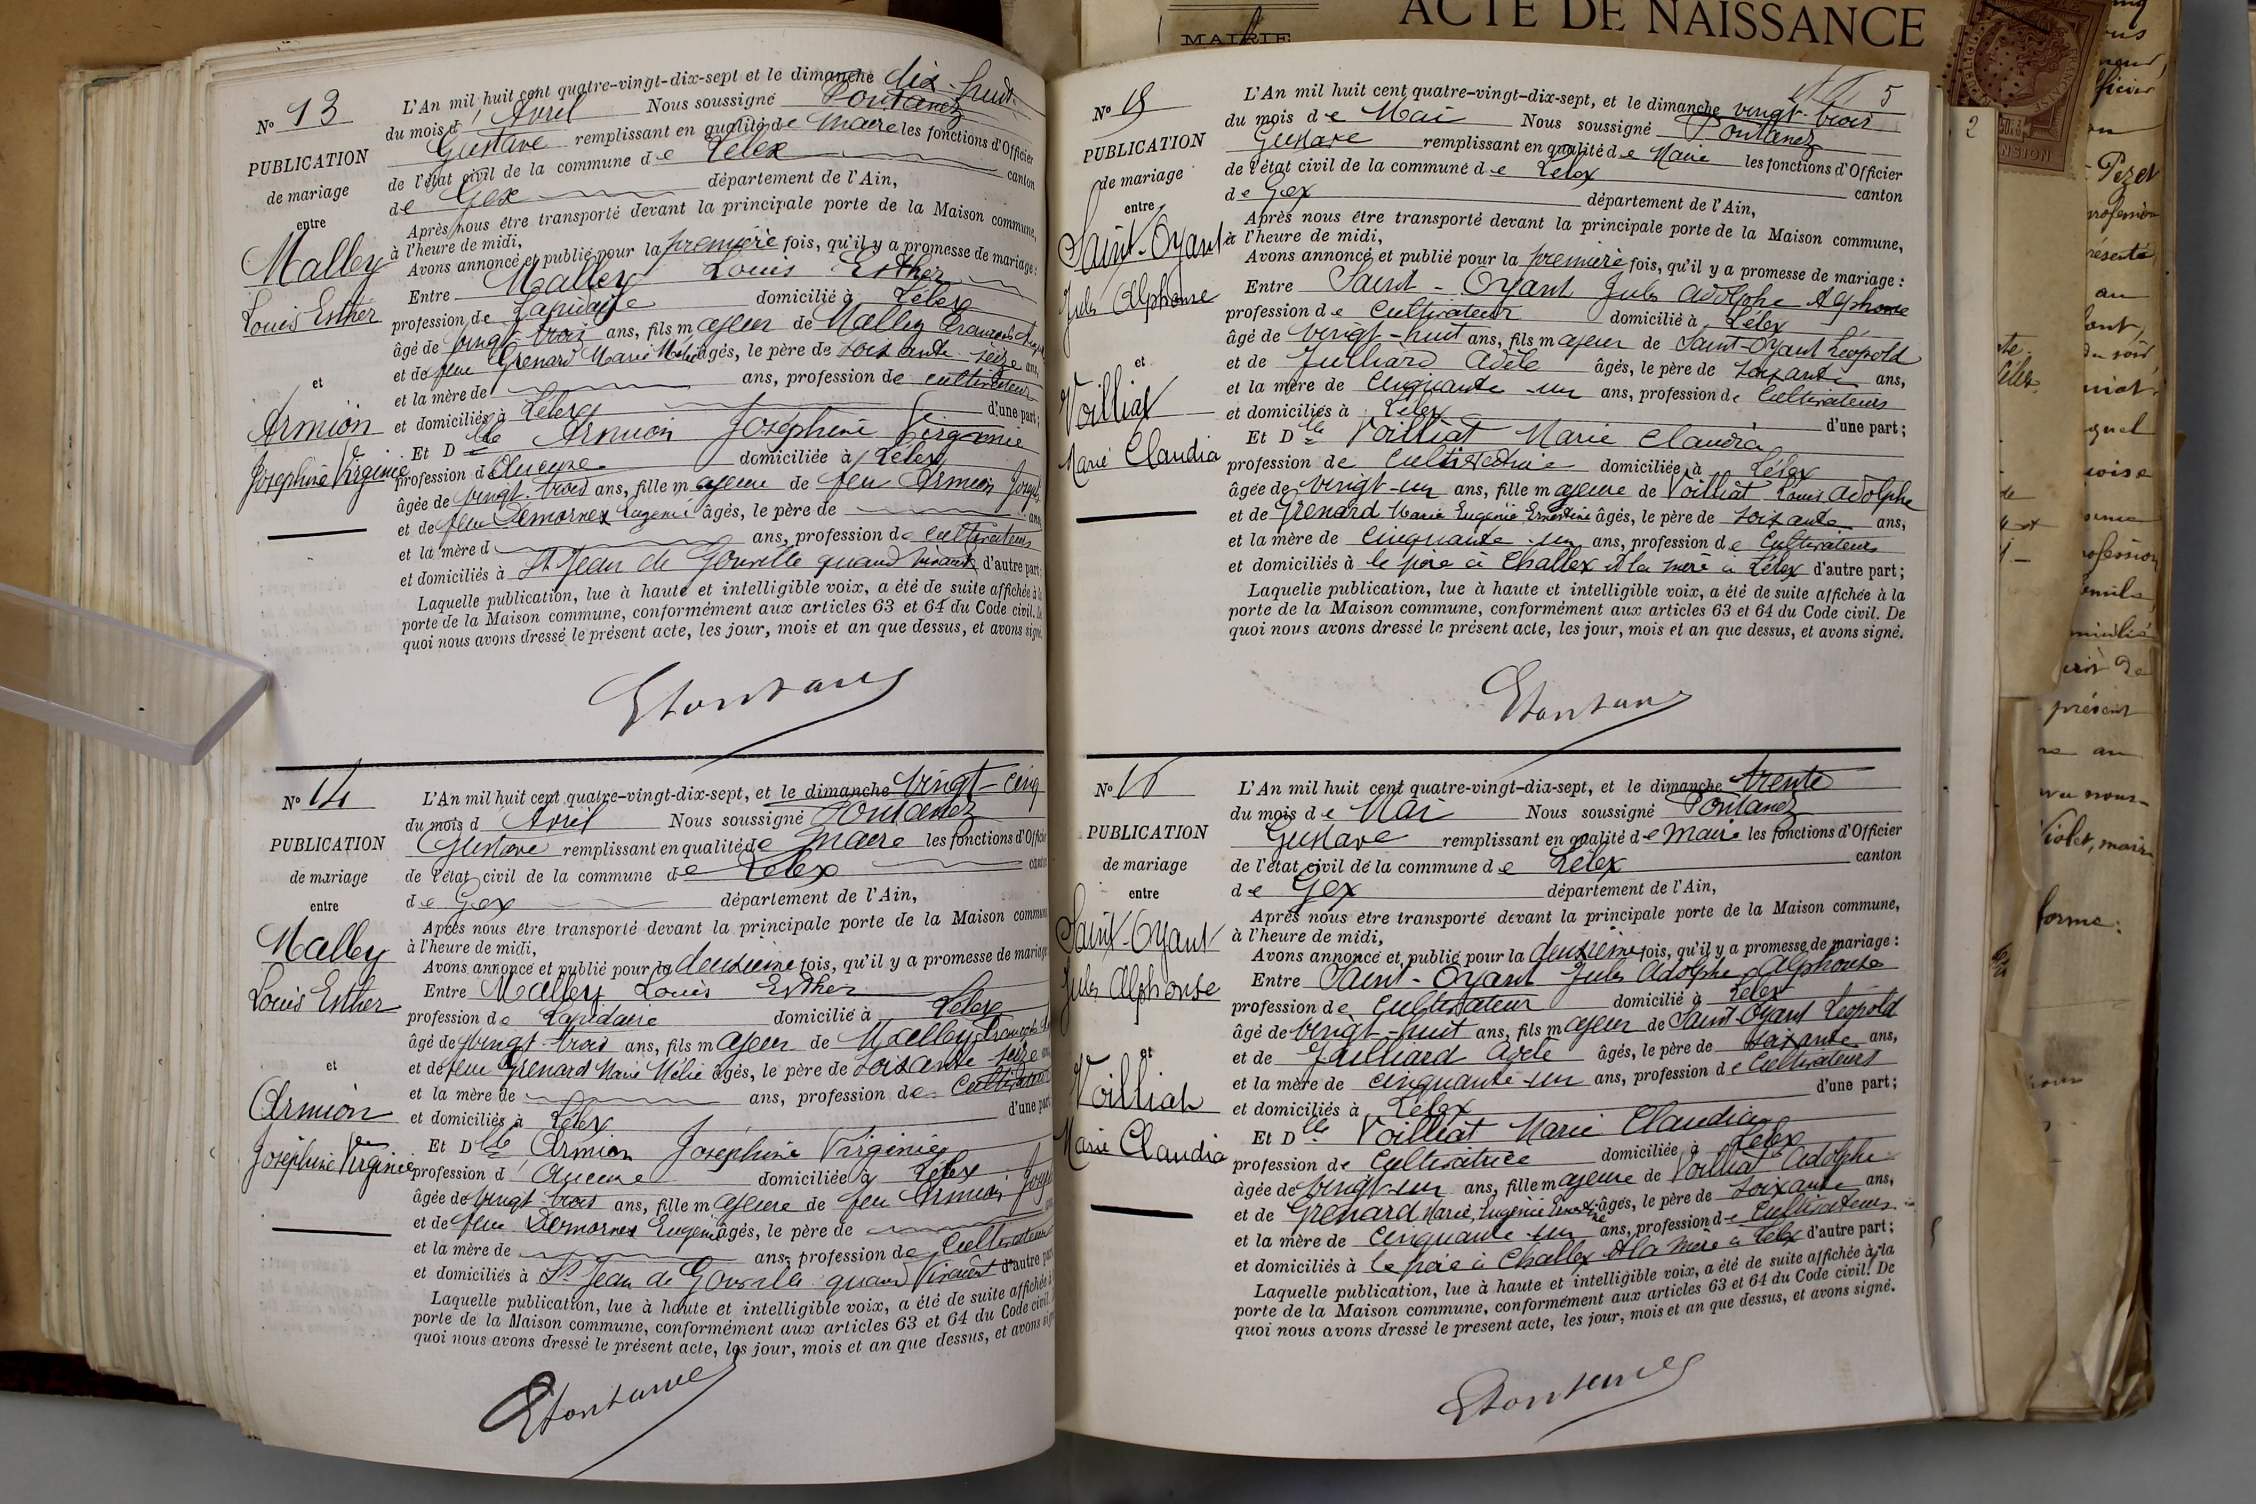 N° 13
PUBLICATION
de mariage
entre
Malley
Louis Esther
et
Armion
Joséphine Virginie
L'An mil huit cent quatre-vingt-dix-sept et le dimanche dix-huit
du mois d'Avril Nous soussigné Fontanez
Gustave remplissant en qualité de Maire les fonctions d'Officier
de l'état civil de la commune de Lélex canton
de Gex département de l'Ain,
Après nous être transporté devant la principale porte de la Maison commune,
à l'heure de midi,
Avons annoncé et publié pour la première fois, qu'il y a promesse de mariage:
Entre Malley Louis Esther
profession de Lapidaire domicilié à Lélex
âgé de vingt-trois ans, fils majeur de Malley François
et de feue Grenard Marie Mélie âgés, le père de soixante-seize ans,
et la mère de ans, profession de cultivateur
et domiciliés à Lélex d'une part;
Et Dlle Armion Joséphine Virginie
profession d' domiciliée à Lélex
âgée de vingt-trois ans, fille majeure de feu Armion Joseph
et de feue Demornex Eugénie âgés, le père de ans,
et la mère d ans, profession de cultivateurs
et domiciliés à St Jean de Gonville quand vivant d'autre part;
Laquelle publication, lue à haute et intelligible voix, a été de suite affichée à la
porte de la Maison commune, conformément aux articles 63 et 64 du Code civil. De
quoi nous avons dressé le présent acte, les jour, mois et an que dessus, et avons signé.
N° 14
PUBLICATION
de mariage
entre
Malley
Louis Esther
et
Armion
Joséphine Virginie
L'An mil huit cent quatre-vingt-dix-sept, et le dimanche vingt-cinq
du mois d Avril Nous soussigné Fontanez
Gustave remplissant en qualité de Maire les fonctions d'Officier
de l'état civil de la commune de Lélex canton
de Gex département de l'Ain,
Après nous être transporté devant la principale porte de la Maison commune
à l'heure de midi,
Avons annoncé et publié pour la deuxième fois, qu'il y a promesse de mariage
Entre Malley Louis Esther
profession de Lapidaire domicilié à Lélex
âgé de vingt-trois ans, fils majeur de Malley François
et de feue Grenard Marie Mélie âgés, le père de soixante-seize
et la mère de ans, profession de cultivateur
et domiciliés à Lélex d'une part
Et Dlle Armion Joséphine Virginie
profession d' domiciliée à Lélex
âgée de vingt-trois ans, fille majeure de feu Armion Joseph
et de feue Demornex Eugénie âgés, le père de
et la mère de ans, profession de cultivateurs
et domiciliés à St Jean de Gonville quand vivant d'autre part
Laquelle publication, lue à haute et intelligible voix, a été de suite affichée à
porte de la Maison commune, conformément aux articles 63 et 64 du Code civil.
quoi nous avons dressé le présent acte, les jour, mois et an que dessus, et avons
MAIRIE
ACTE DE NAISSANCE
5
N° 15
PUBLICATION
de mariage
entre
Saint-Oyant
Jules Alphonse
et
Voilliat
Marie Claudia
L'An mil huit cent quatre-vingt-dix-sept, et le dimanche vingt-trois
du mois de Mai Nous soussigné Fontanez
Gustave remplissant en qualité de Maire les fonctions d'Officier
de l'état civil de la commune de Lélex canton
de Gex département de l'Ain,
Après nous être transporté devant la principale porte de la Maison commune,
à l'heure de midi,
Avons annoncé et publié pour la première fois, qu'il y a promesse de mariage :
Entre Saint-Oyant Jules Adolphe Alphonse
profession de Cultivateur domicilié à Lélex
âgé de vingt-huit ans, fils majeur de Saint-Oyant Léopold
et de Julliard Adèle âgés, le père de soixante ans,
et la mère de cinquante-un ans, profession de Cultivateurs
et domiciliés à Lélex d'une part;
Et Dlle Voilliat Marie Claudia
profession de Cultivatrice domiciliée à Lélex
âgée de vingt-un ans, fille majeure de Voilliat Louis Adolphe
et de Grenard Marie Eugénie Ernestine âgés, le père de soixante ans,
et la mère de cinquante-un ans, profession de Cultivateurs
et domiciliés à le père à Challex et la mère à Lélex d'autre part;
Laquelle publication, lue à haute et intelligible voix, a été de suite affichée à la
porte de la Maison commune, conformément aux articles 63 et 64 du Code civil. De
quoi nous avons dressé le présent acte, les jour, mois et an que dessus, et avons signé.
N° 16
PUBLICATION
de mariage
entre
Saint-Oyant
Jules Alphonse
et
Voilliat
Marie Claudia
L'An mil huit cent quatre-vingt-dix-sept, et le dimanche trente
du mois de Mai Nous soussigné Fontanez
Gustave remplissant en qualité de Maire les fonctions d'Officier
de l'état civil de la commune de Lélex canton
de Gex département de l'Ain,
Après nous être transporté devant la principale porte de la Maison commune,
à l'heure de midi,
Avons annoncé et publié pour la deuxième fois, qu'il y a promesse de mariage :
Entre Saint-Oyant Jules Adolphe Alphonse
profession de Cultivateur domicilié à Lélex
âgé de vingt-huit ans, fils majeur de Saint-Oyant Léopold
et de Julliard Adèle âgés, le père de soixante ans,
et la mère de cinquante-un ans, profession de Cultivateurs
et domiciliés à Lélex d'une part;
Et Dlle Voilliat Marie Claudia
profession de Cultivatrice domiciliée à Lélex
âgée de vingt-un ans, fille majeure de Voilliat Adolphe
et de Grenard Marie Eugénie Ernestine âgés, le père de soixante ans,
et la mère de cinquante-un ans, profession de Cultivateurs
et domiciliés à le père à Challex et la mère à Lélex d'autre part;
Laquelle publication, lue à haute et intelligible voix, a été de suite affichée à la
porte de la Maison commune, conformément aux articles 63 et 64 du Code civil. De
quoi nous avons dressé le présent acte, les jour, mois et an que dessus, et avons signé.
2
Pezet
profession
au
présent
Violet, maire
forme: